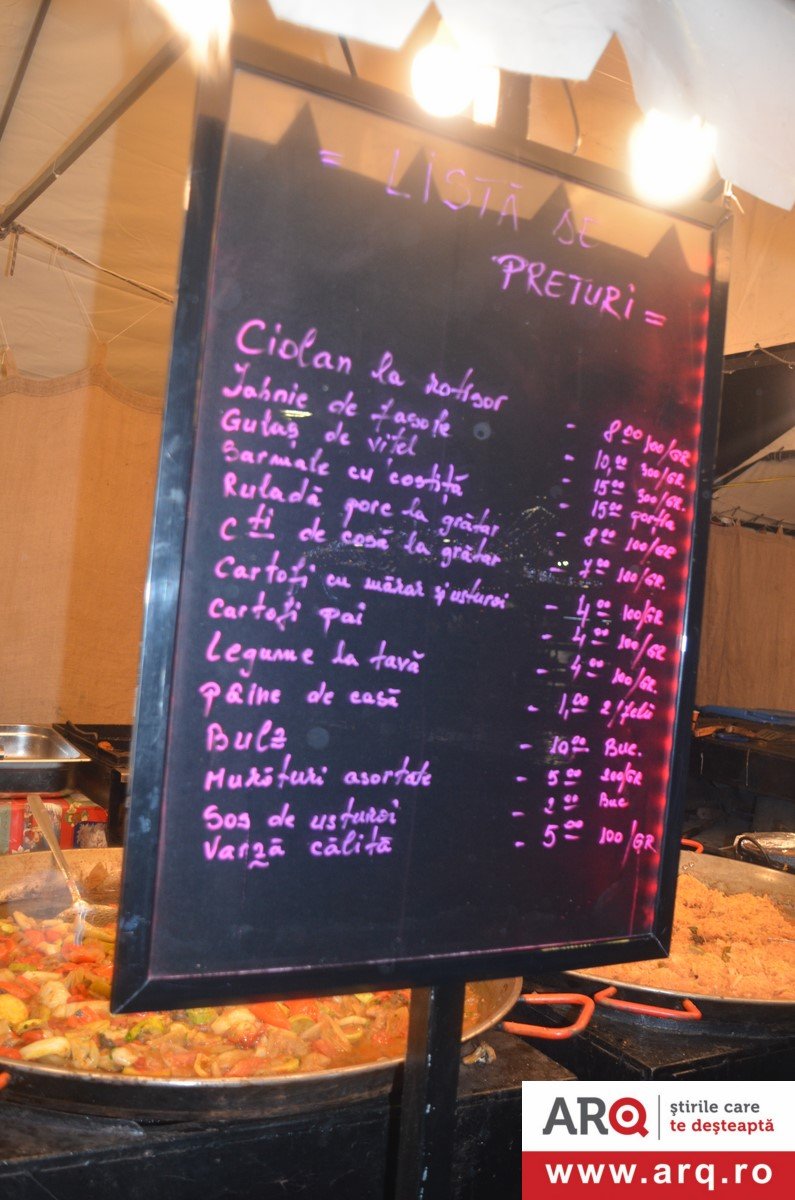 = LISTĂ DE
PREȚURI =
Ciolan la rotisor - 8⁰⁰ 100/GR
Iahnie de fasole - 10,⁰⁰ 300/GR
Gulaș de vițel - 15⁰⁰ 300/GR.
Sarmale cu costiță - 15⁰⁰ porția
Ruladă porc la grătar - 8⁰⁰ 100/GR
Cți de casă la grătar - 7⁰⁰ 100/GR.
Cartofi cu mărar și usturoi - 4⁰⁰ 100/GR
Cartofi pai - 4⁰⁰ 100/GR
Legume la tavă - 4⁰⁰ 100/GR.
Pâine de casă - 1,⁰⁰ 2/felii
Bulz - 10⁰⁰ Buc.
Murături asortate - 5⁰⁰ 200/GR
Sos de usturoi - 2⁰⁰ Buc
Varză călită - 5⁰⁰ 100/GR
ARQ știrile care
te deșteaptă
www.arq.ro